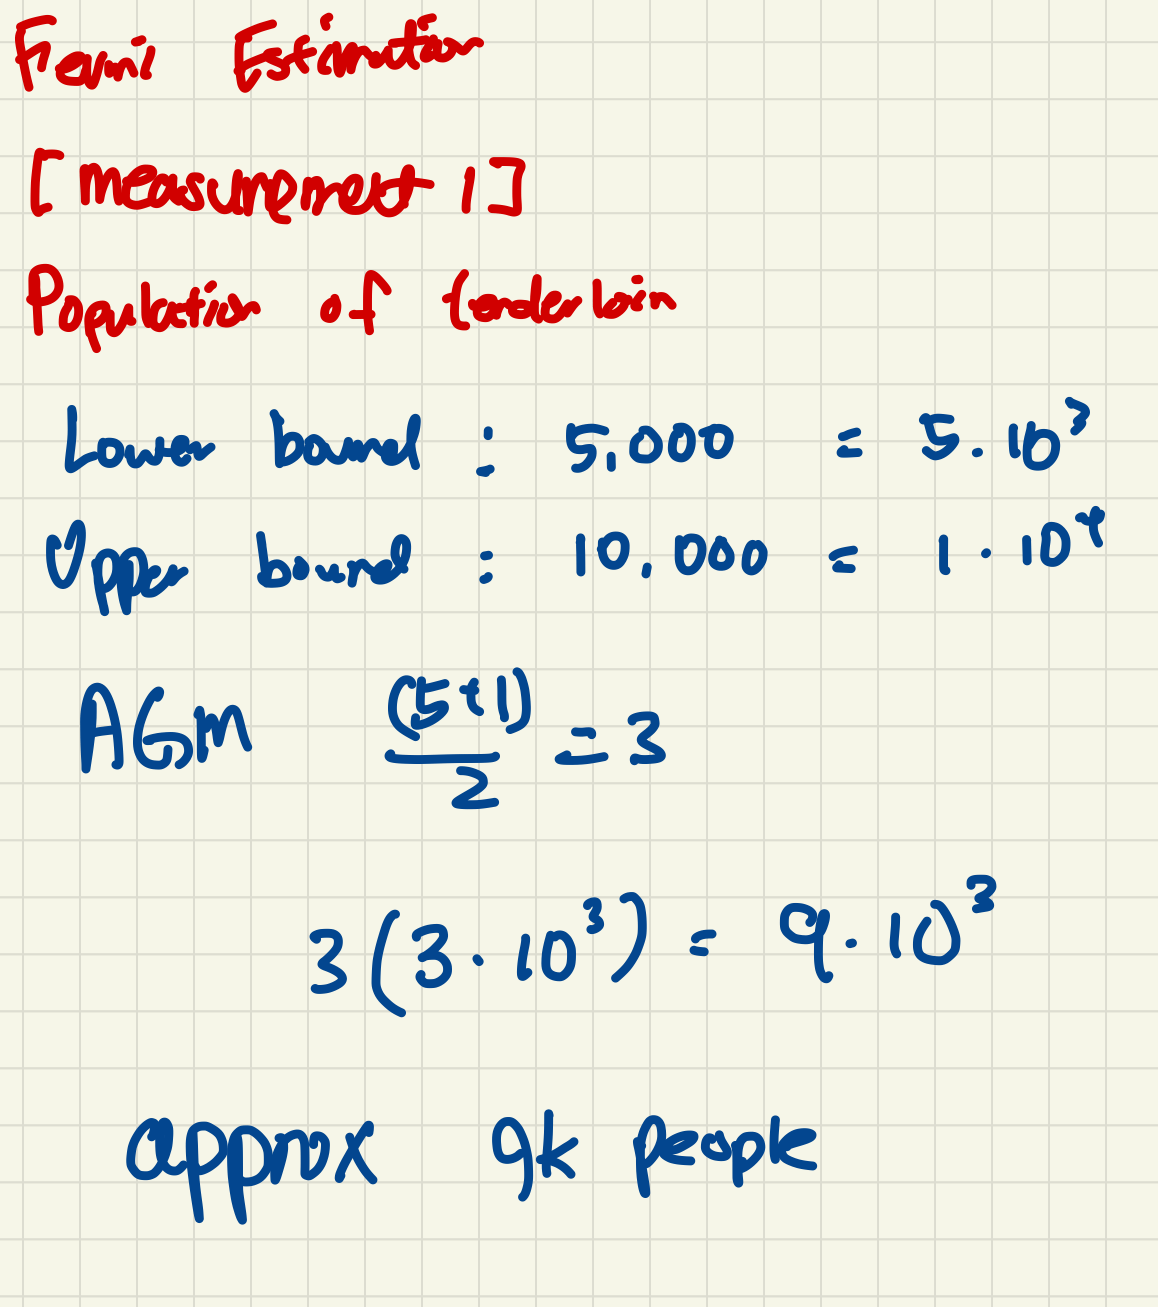 Fermi Estimation
[measurement 1]
Population of tenderloin
Lower bound : 5,000 = 5 · 10³
Upper bound : 10,000 = 1 · 10⁴
AGM (5+1)/2 = 3
3(3 · 10³) = 9 · 10³
approx 9k people